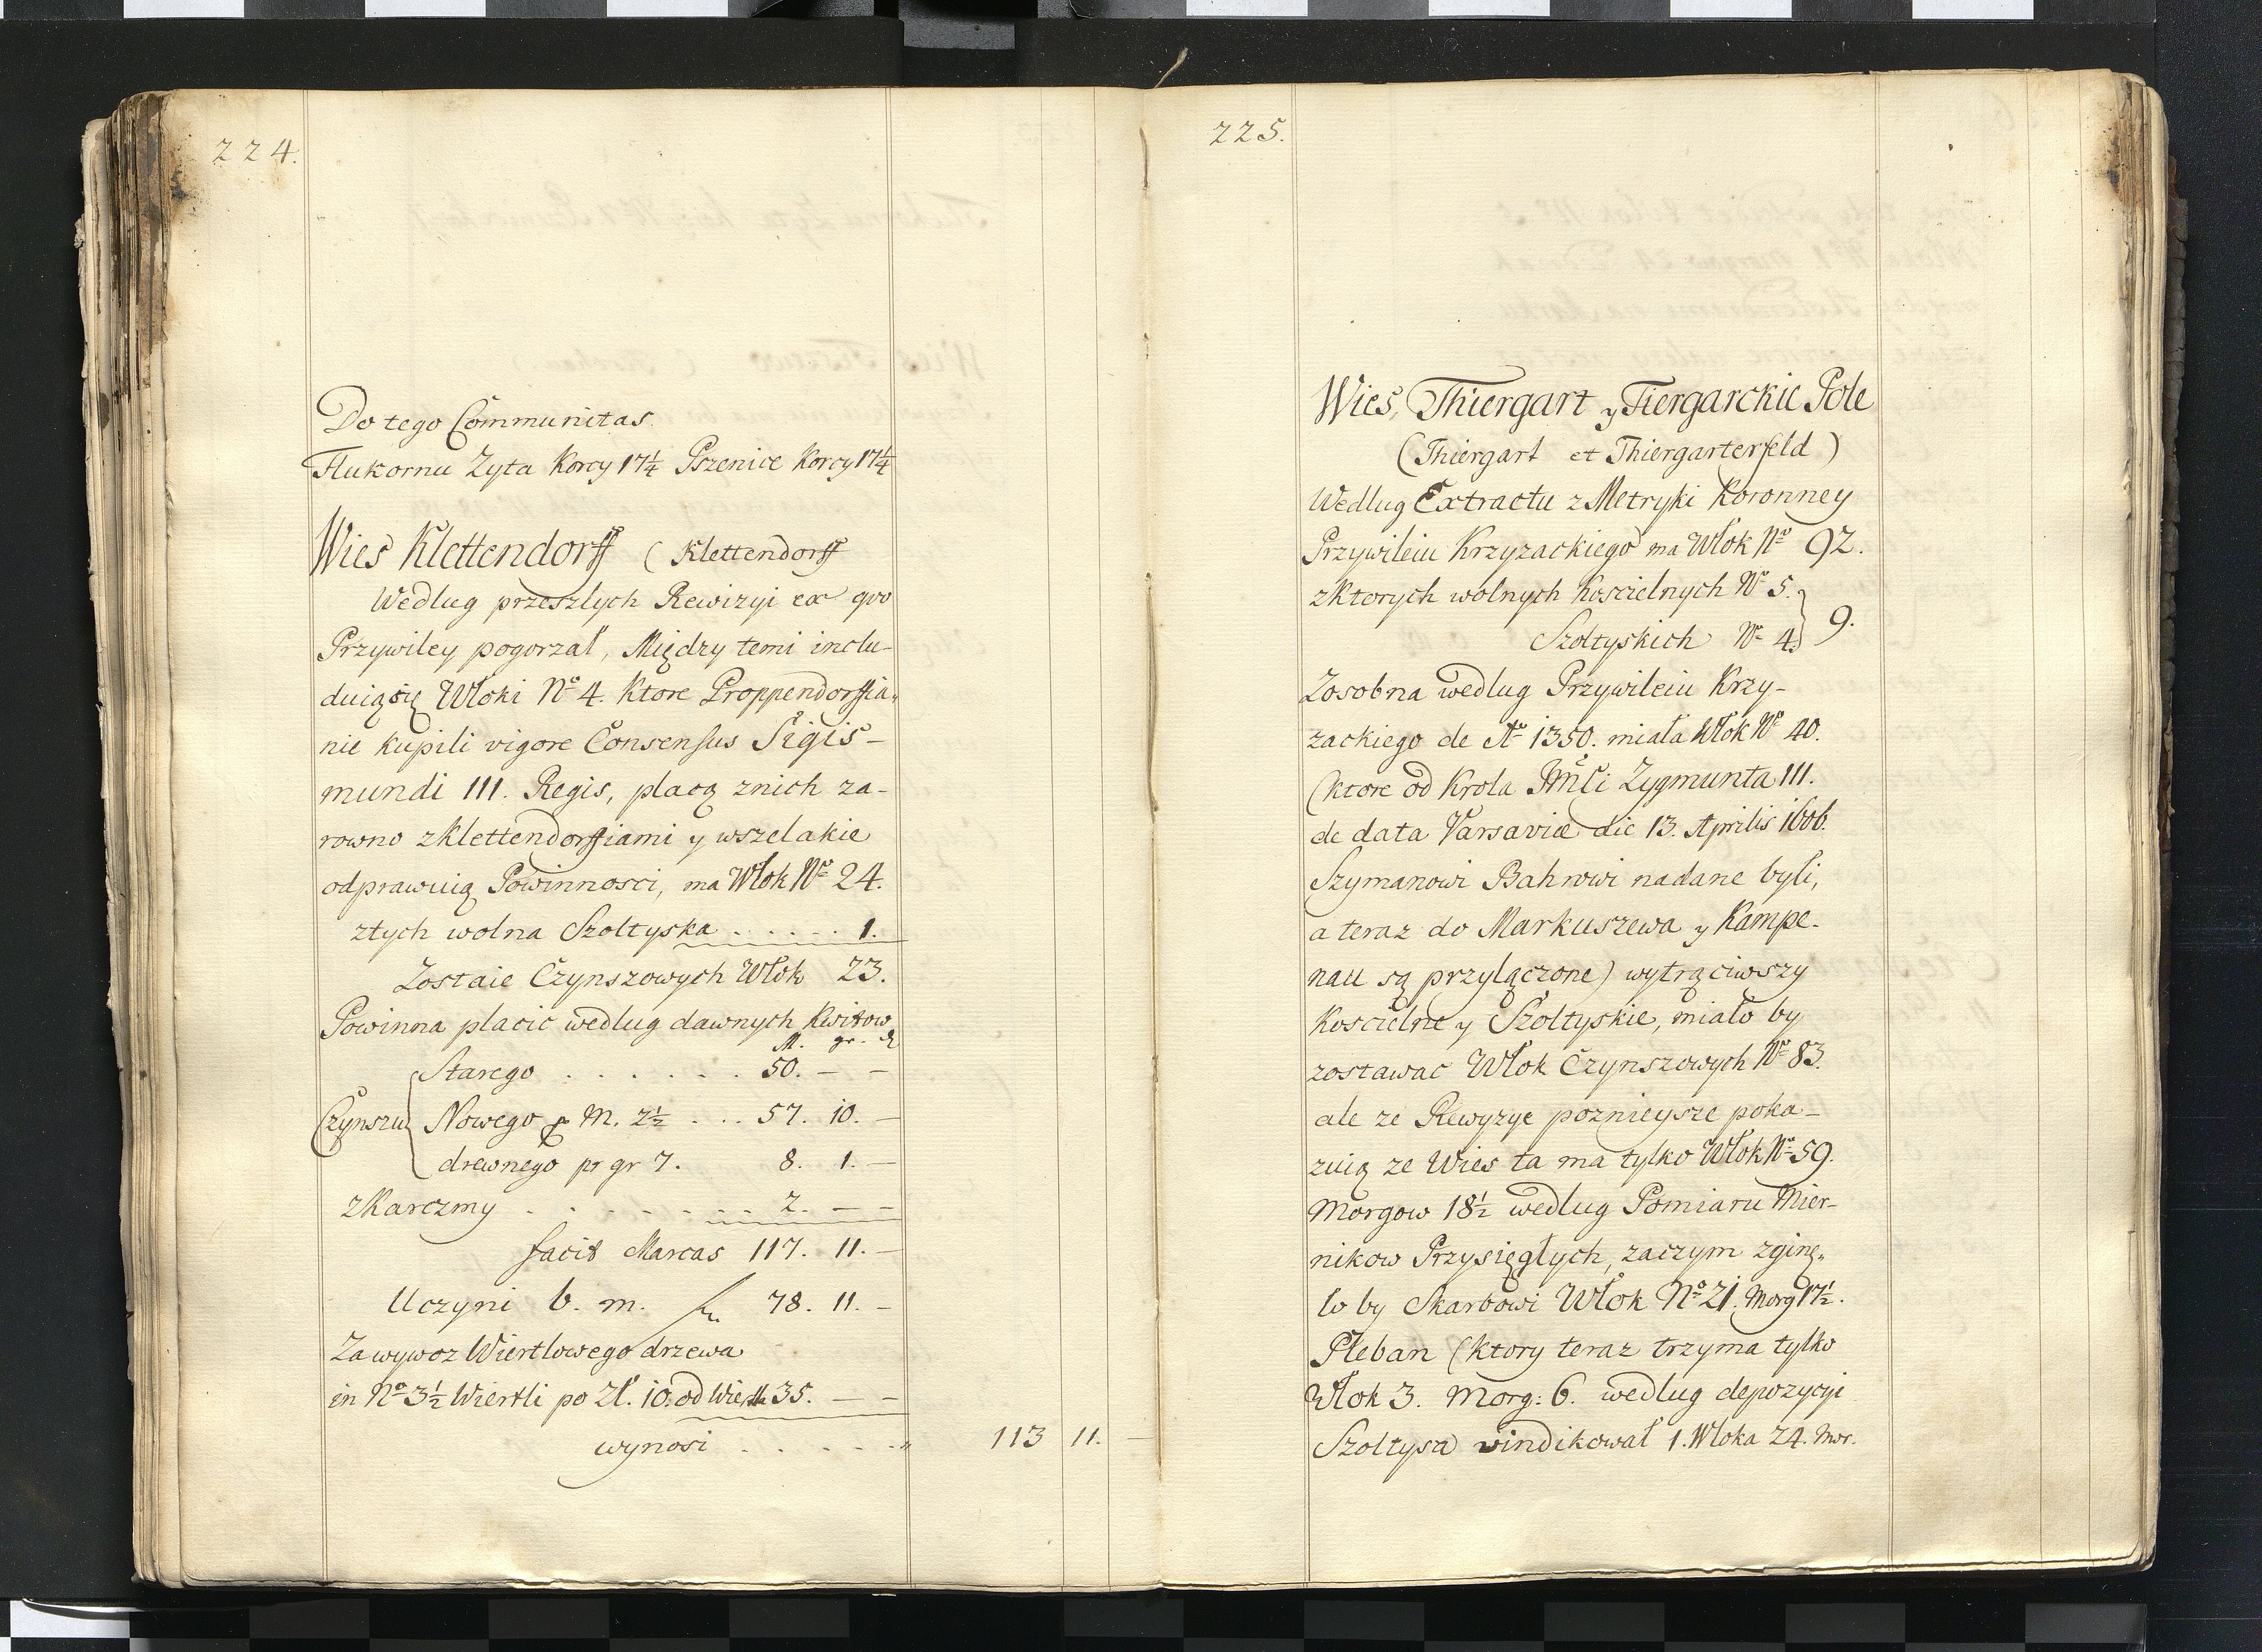 224.
Do tego Communitas.
Flukornu Zyta Korcy 17¼ Pszenice Korcy 17¼
Wies Klettendorff ( Klettendorff
Wedlug przeszlych Rewizyi ex quo
Przywiley pogorzał, Między temi inclu-
duią się Włoki Nº 4. Ktore Proppendorffia„
nie kupili vigore Consensus Sigis-
mundi III. Regis, płacą znich za-
rowno zKlettendorffiami y wszelakie
odprawuią Powinnosci, ma Włok Nº 24.
ztych wolna Szoltyska . . . . . . 1.
Zostaie Czynszowych Włok 23.
Powinna płacic wedlug dawnych Kwitow
M. gr. ₰
Starego . . . . . . . 50. — —
Czynszu Nowego p M. 2½ . . . 57. 10. —
drewnego pr gr 7. 8. 1. —
zKarczmy . . . . . . . 2. — —
facit Marcas 117. 11. —
Uczyni b. m. fn. 78. 11. —
Za wywoz Wiertlowego drzewa
in Nº 3½ Wiertli po Zł. 10. od Wiertla 35. — —
wynosi . . . . . „ 113 11. —
225.
Wies, Thiergart y Tiergarckie Pole
(Thiergart et Thiergarterfeld)
Wedlug Extractu z Metryki Koronney
Przywileiu Krzyzackiego ma Włok Nº 92.
zKtorych wolnych Koscielnych Nº 5.
Szoltyskich Nº 4. } 9.
Zosobna wedlug Przywileiu Krzy-
zackiego de Aº 1350. miała Włok Nº 40.
(ktore od Krola JMci Zygmunta III.
de data Varsaviæ die 13. Aprilis 1606.
Szymanowi Bahrwi nadane byli,
a teraz do Markuszewa y Kampe-
nau są przyłączone) wytrąciwszy
Koscielne y Szoltyskie, miało by
zostawac Włok Czynszowych Nº 83.
ale ze Rewyzye poznieysze poka-
zuią ze Wies ta ma tylko Włok Nº 59.
Morgow 18½ wedlug Pomiaru Mier-
nikow Przysięgłych, zaczym zginę„
lo by Skarbowi Włok Nº 21. Morg 17½.
Pleban (ktory teraz trzyma tylko
Włok 3. Morg: 6. wedlug depozycyi
Szoltysa) windikował 1. Wloka 24. Mor.